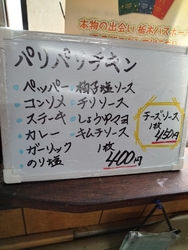 本物の出会い 栃木
パリパリチキン
・ペッパー
・コンソメ
・ステーキ
・カレー
・ガーリック
・のり塩
・柚子塩ソース
・チリソース
・しょうゆマヨ
・キムチソース
1枚
400円
チーズソース
1枚
450円